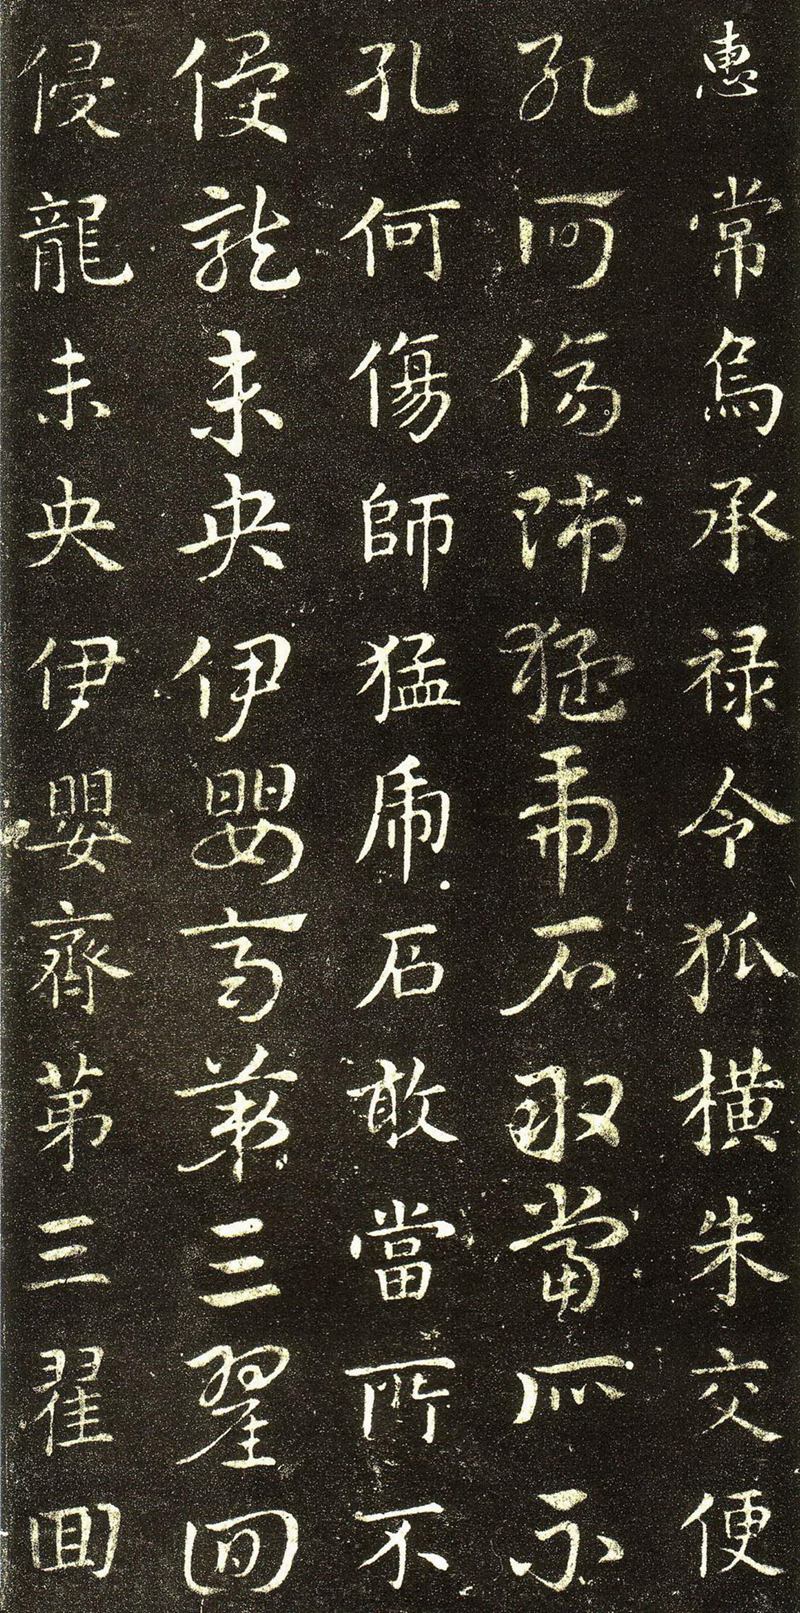 惠常烏承禄令狐横朱交便
孔何傷師猛虎石敢當所不
孔何傷師猛虎石敢當所不
侵龍未央伊嬰齊第三翟回
侵龍未央伊嬰齊第三翟回